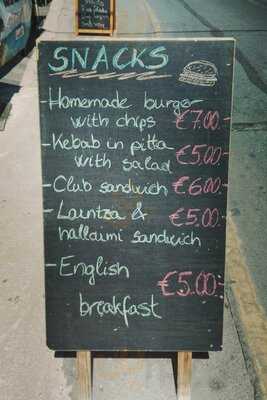 SNACKS
- Homemade burger
with chips €7.00.-
- Kebab in pitta
with salad €5.00-
- Club sandwich €6.00-
- Lountza & €5.00-
hallaimi sandwich
- English
breakfast €5.00-